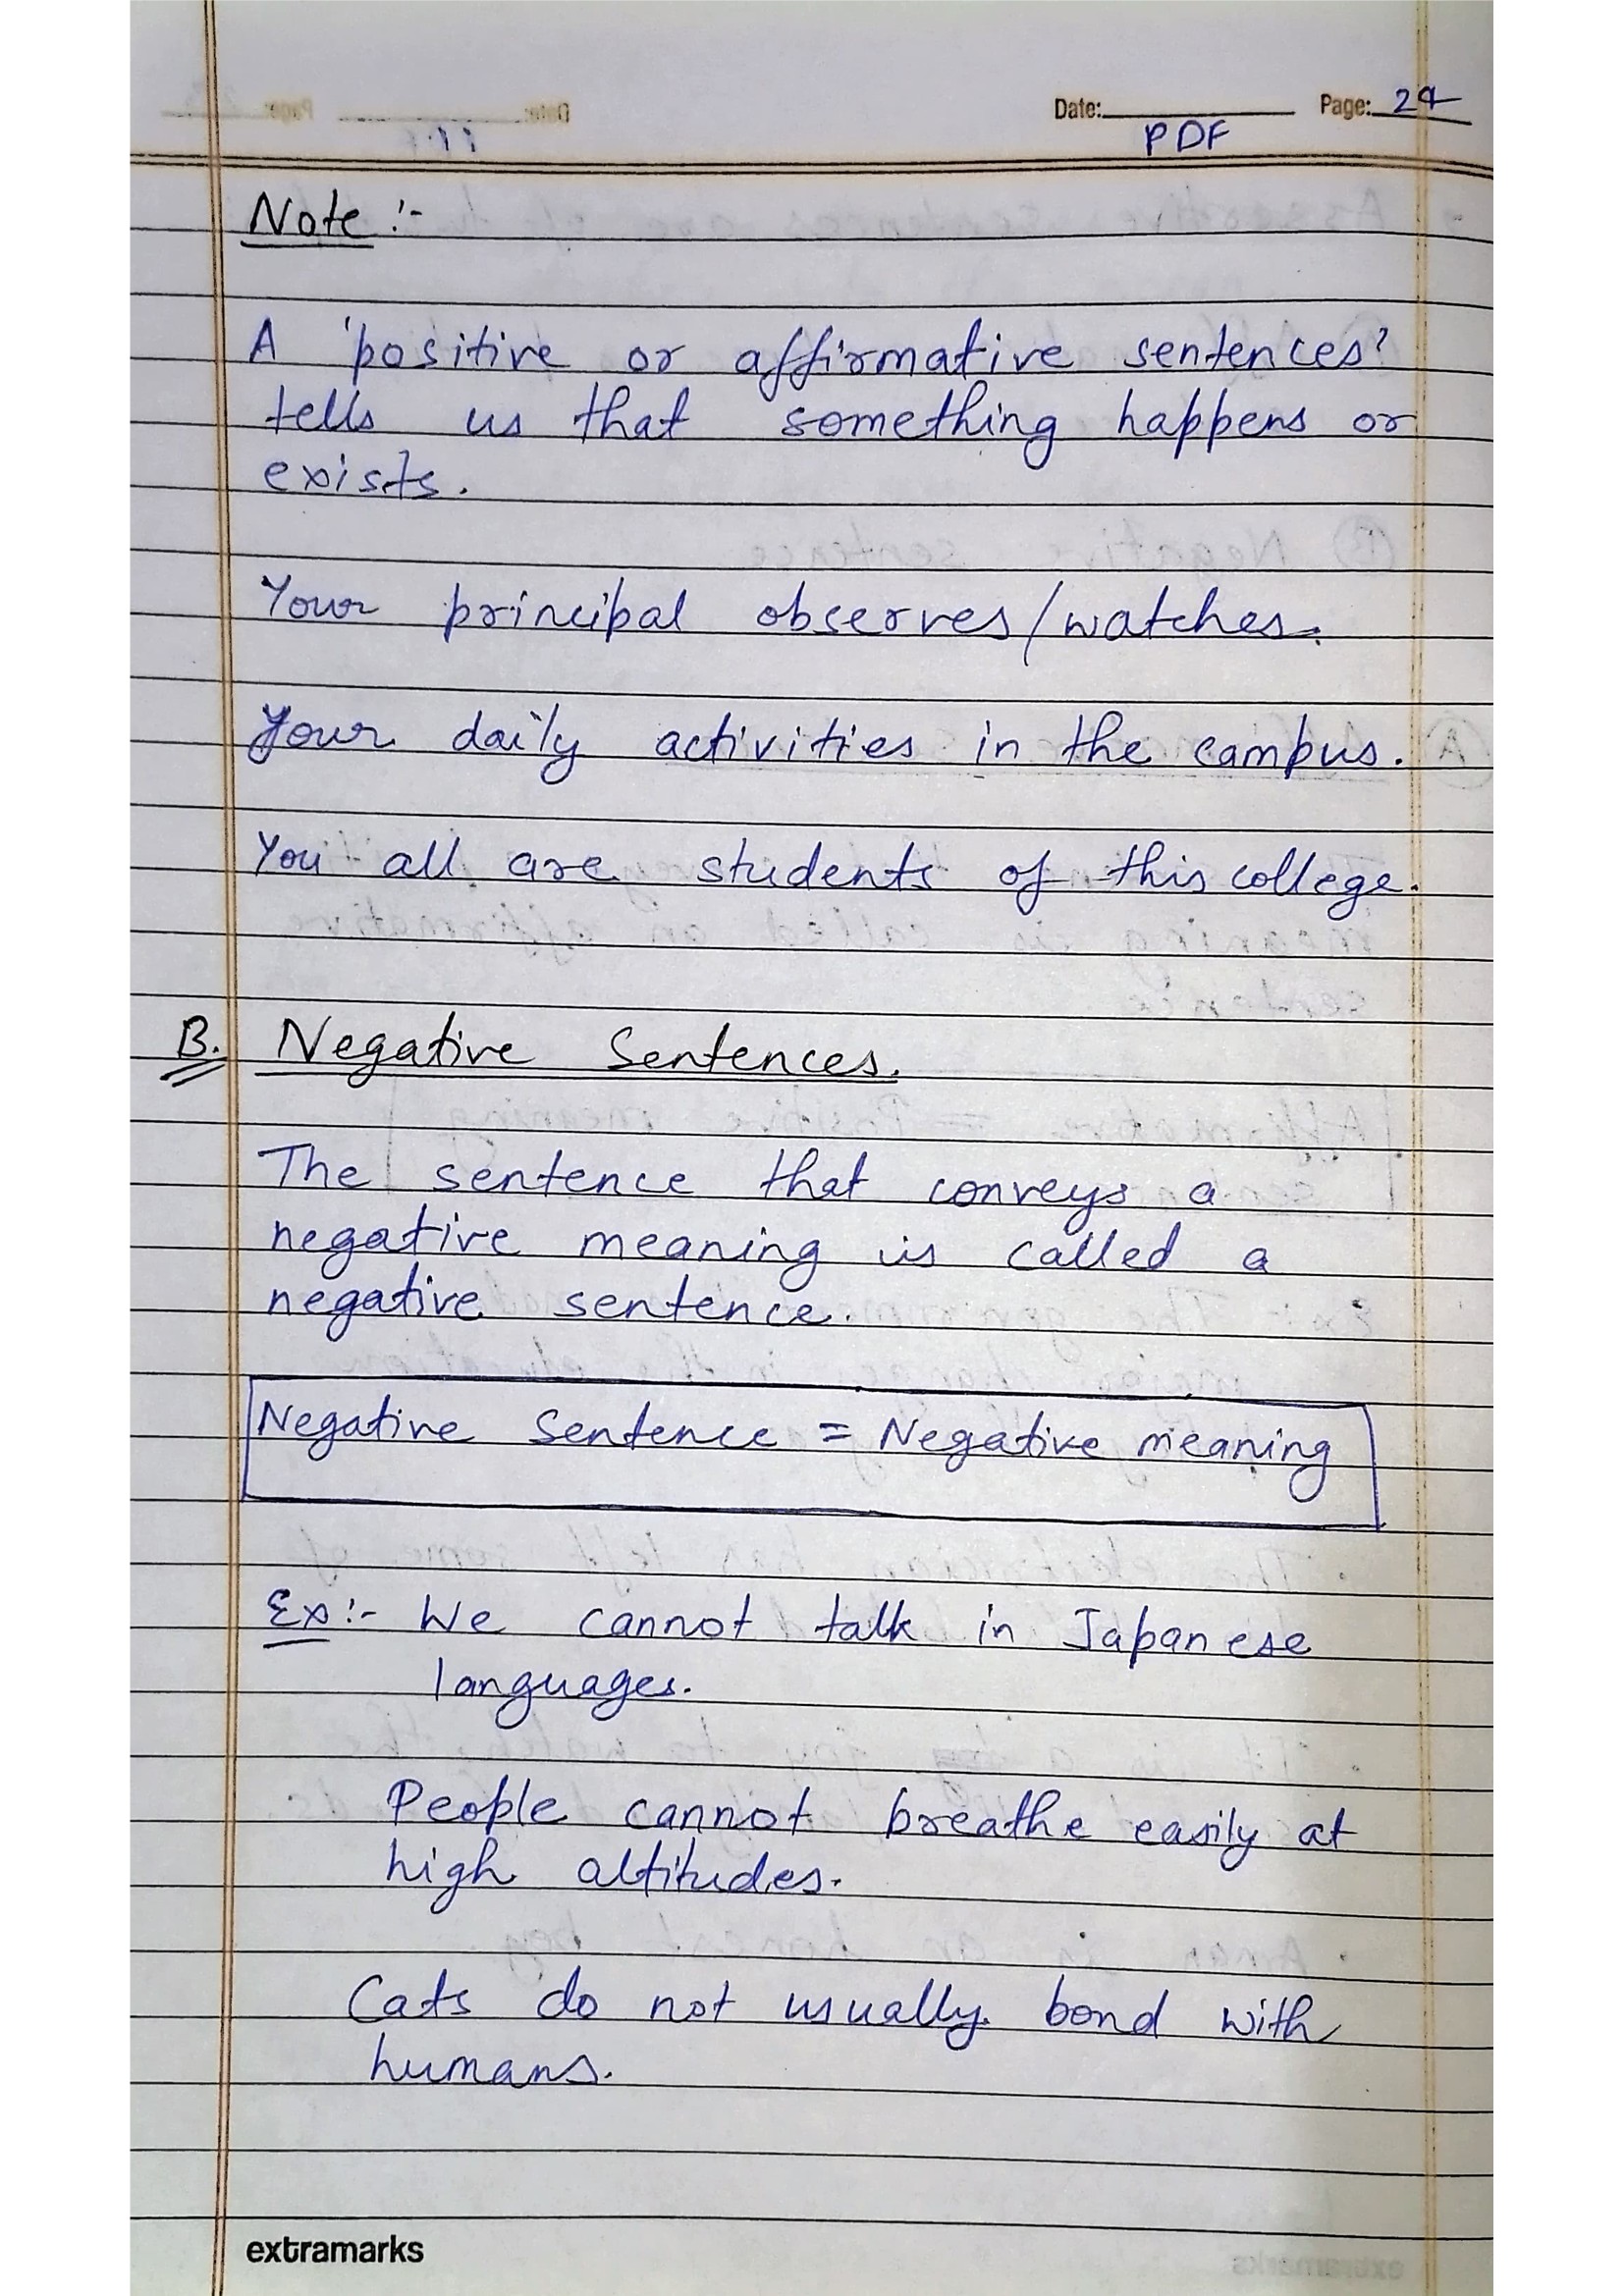 Date: Page: 24
PDF
Note :-
A 'positive or affirmative sentences'
tells us that something happens or
exists.
Your principal observes/watches.
Your daily activities in the campus.
You all are students of this college.
B. Negative Sentences.
The sentence that conveys a
negative meaning is called a
negative sentence.
Negative Sentence = Negative meaning
Ex :- We cannot talk in Japanese
languages.
People cannot breathe easily at
high altitudes.
Cats do not usually bond with
humans.
extramarks